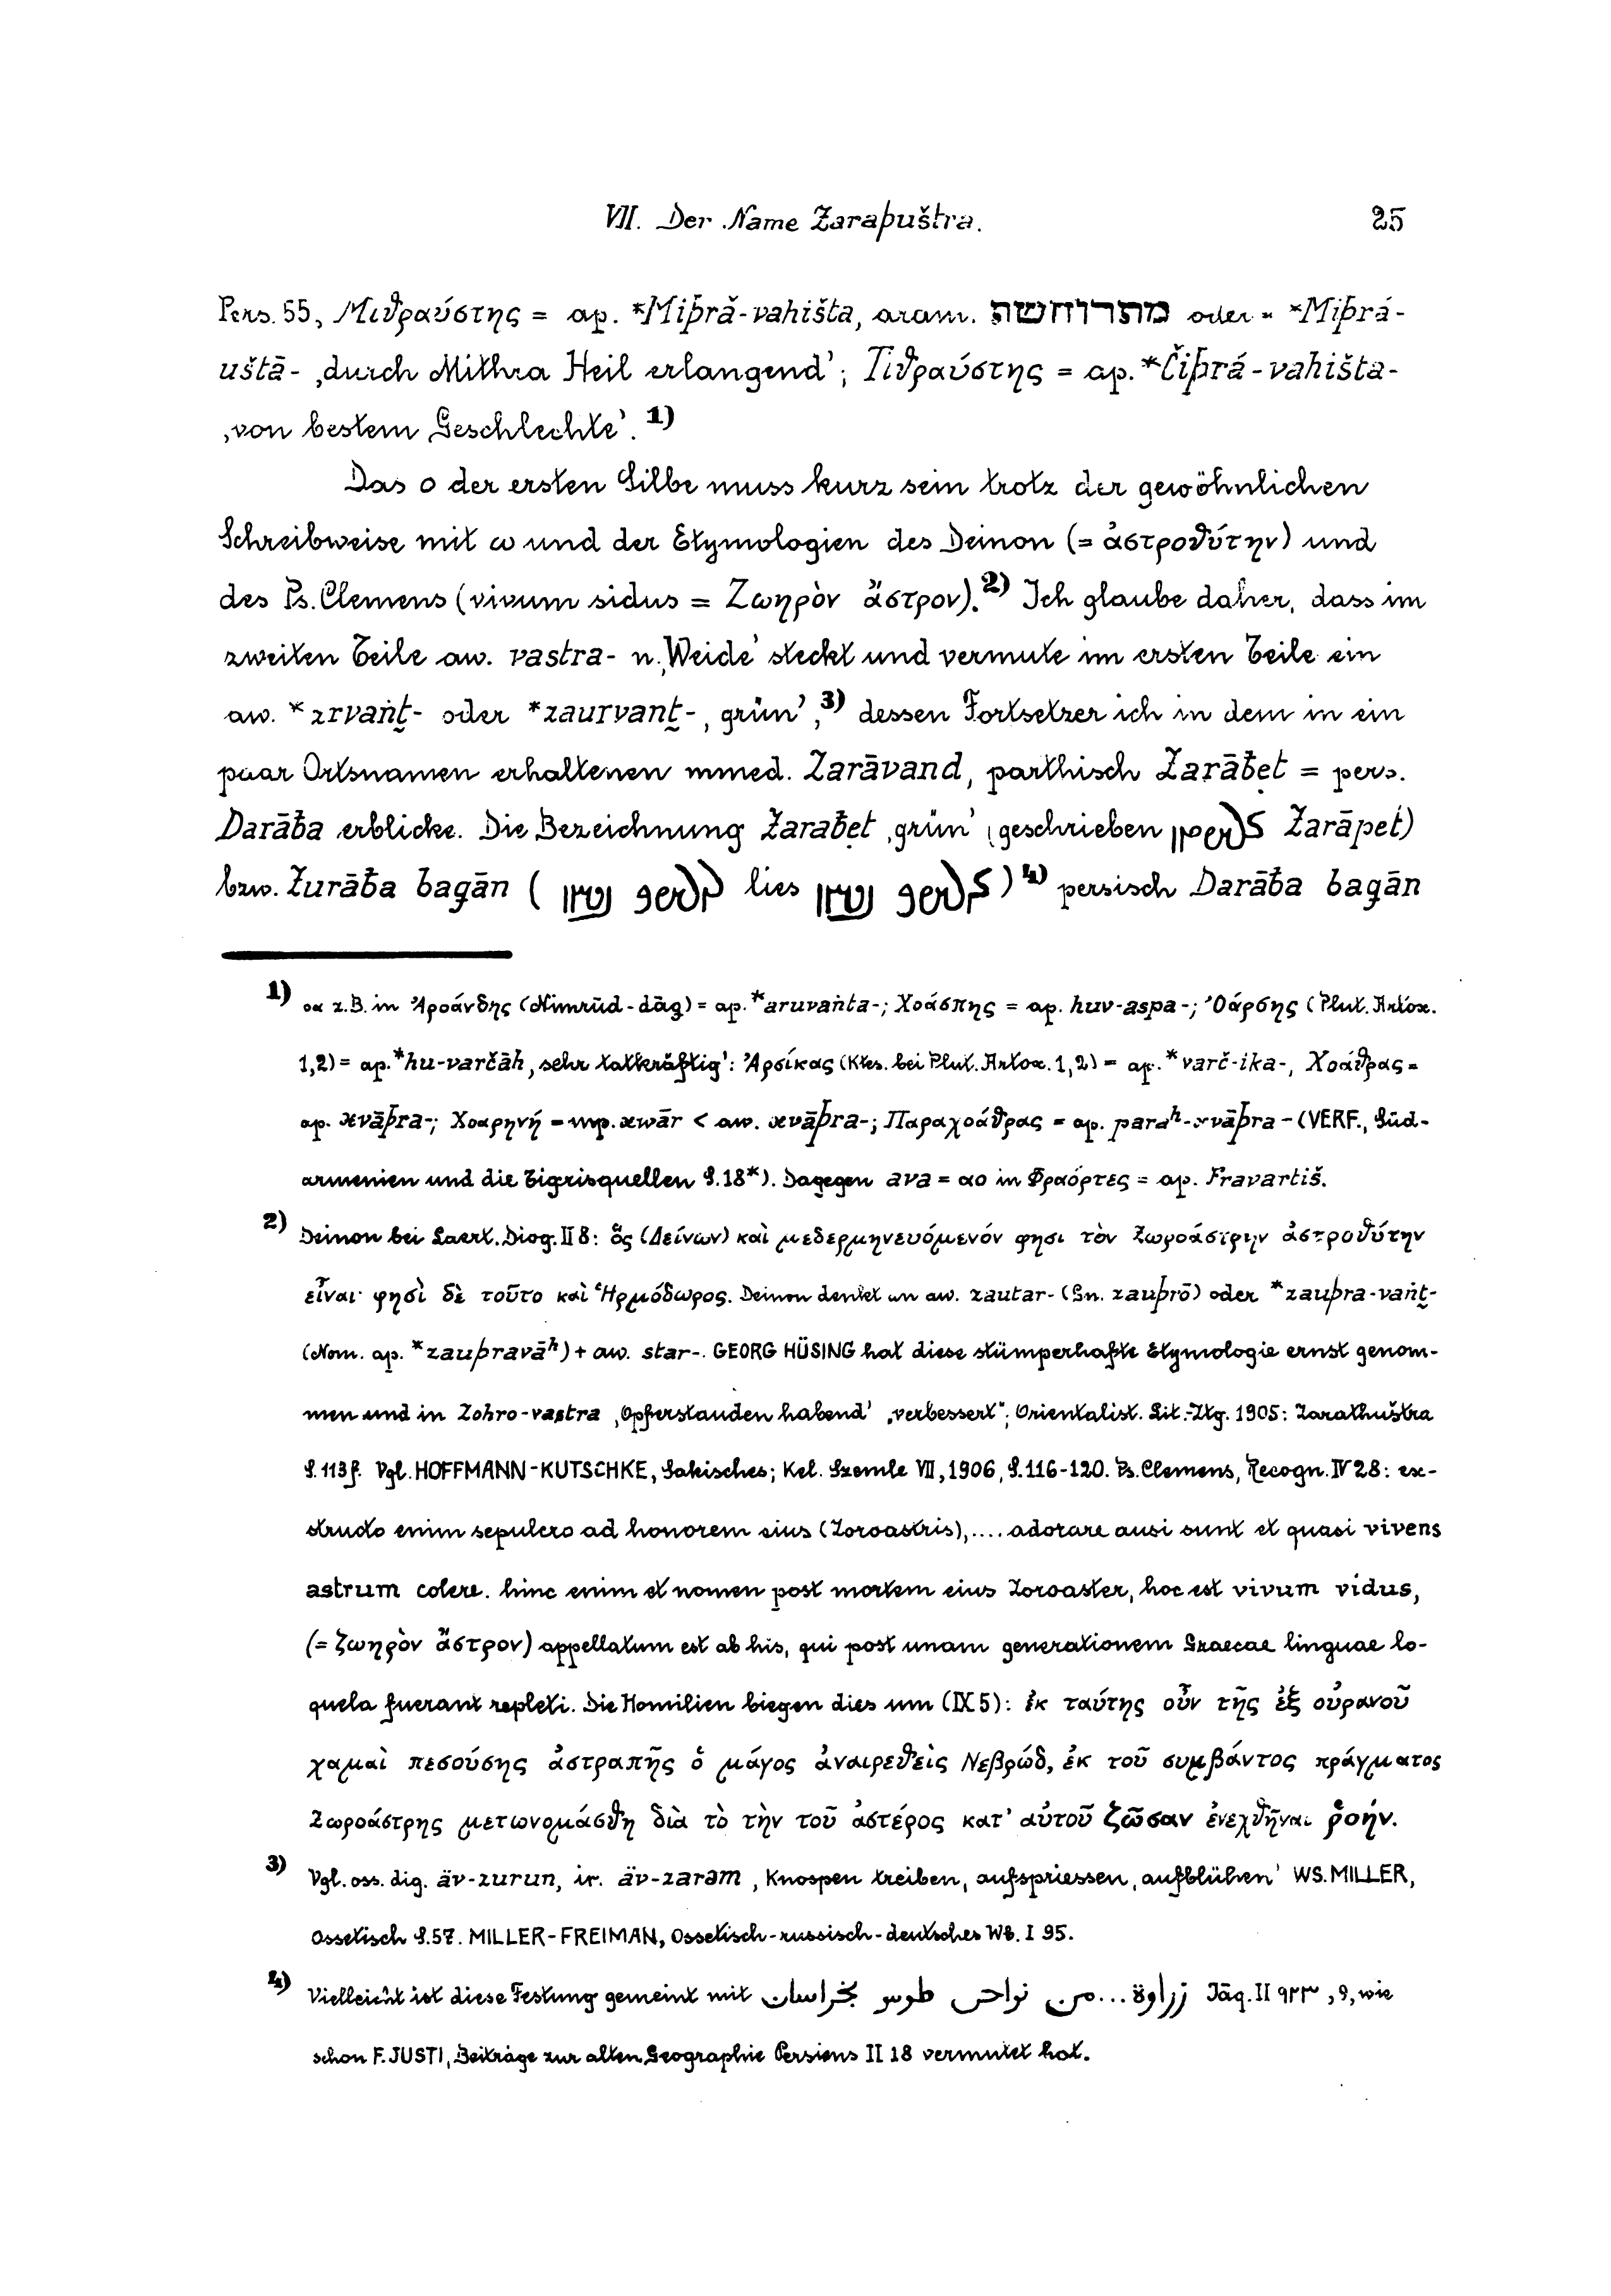 VII. Der Name Zaraþuštra. 25
Pers. 55, Μιθραύστης = ap. *Miþră-vahišta, aram. מתרוחשה oder = *Miþrá-
uštā- ‚durch Mithra Heil erlangend’; Τιθραύστης = ap. *Čiþrá-vahišta-
‚von bestem Geschlechte’. 1)
Das o der ersten Silbe muss kurz sein trotz der gewöhnlichen
Schreibweise mit ω und der Etymologien des Deinon (= ἀστροθύτην) und
des Ps. Clemens (vivum sidus = Ζωηρὸν ἄστρον).2) Ich glaube daher, dass im
zweiten Teile aw. vastra- n. ‚Weide’ steckt und vermute im ersten Teile ein
aw. *zrvaṅt̰- oder *zaurvant̰- ‚grün’,3) dessen Fortsetzer ich in dem in ein
paar Ortsnamen erhaltenen mmed. Zarāvand, parthisch Zarāƀet = pers.
Darāƀa erblicke. Die Bezeichnung Zaraƀet ‚grün’ (geschrieben Zarāpet)
bzw. Zurāƀa bagān ( lies )4) persisch Darāƀa bagān
1) οα z.B. in Ἀροάνδης (Nimrūd-dāg) = ap. *aruvaṅta-; Χοάσπης = ap. huv-aspa-; Ὀάρσης (Plut. Artox.
1,2) = ap. *hu-varčāh ‚sehr tatkräftig’: Ἀρσίκας (Ktes. bei Plut. Artox. 1,2) = ap. *varč-ika-, Χοάθρας =
ap. xvāþra-; Χοαρηνή = mp. xwār < aw. xvāþra-; Παραχοάθρας = ap. paraʰ-xvāþra- (VERF., Süd-
armenien und die Tigrisquellen S. 18*). Dagegen ava = αο in Φραόρτες = ap. Fravartiš.
2) Deinon bei Laert. Diog. II 8: ὅς (Δείνων) καὶ μεδερμηνευόμενόν φησι τὸν Ζωροάστρην ἀστροθύτην
εἶναι· φησὶ δὲ τοῦτο καὶ Ἑρμόδωρος. Deinon denkt an aw. zautar- (Gn. zauþrō) oder *zauþra-vaṅt̰-
(Nom. ap. *zauþravāʰ) + aw. star-. GEORG HÜSING hat diese stümperhafte Etymologie ernst genom-
men und in Zohro-vastra ‚Opferstauden habend’ „verbessert“; Orientalist. Lit.-Ztg. 1905: Zarathuštra
S. 113f. Vgl. HOFFMANN-KUTSCHKE, Sakisches; Kel. Szemle VII, 1906, S. 116-120. Ps. Clemens, Recogn. IV 28: ex-
structo enim sepulcro ad honorem eius (Zoroastris),.... adorare ausi sunt et quasi vivens
astrum colere. hinc enim et nomen post mortem eius Zoroaster, hoc est vivum vidus,
(= ζωηρὸν ἄστρον) appellatum est ab his, qui post unam generationem Graecae linguae lo-
quela fuerant repleti. Die Homilien biegen dies um (IX 5): ἐκ ταύτης οὖν τῆς ἐξ οὐρανοῦ
χαμαὶ πεσούσης ἀστραπῆς ὁ μάγος ἀναιρεθεὶς Νεβρώδ, ἐκ τοῦ συμβάντος πράγματος
Ζωροάστρης μετωνομάσθη διὰ τὸ τὴν τοῦ ἀστέρος κατ’ αὐτοῦ ζῶσαν ἐνεχθῆναι ῥοήν.
3) Vgl. oss. dig. äv-zurun, ir. äv-zarəm ‚Knospen treiben, aufspriessen, aufblühen’ WS. MILLER,
Ossetisch S. 57. MILLER-FREIMAN, Ossetisch-russisch-deutsches Wb. I 95.
4) Vielleicht ist diese Festung gemeint mit زراوة...من نواحى طوس بخراسان Jāq. II ٩٢٣, 9, wie
schon F. JUSTI, Beiträge zur alten Geographie Persiens II 18 vermutet hat.